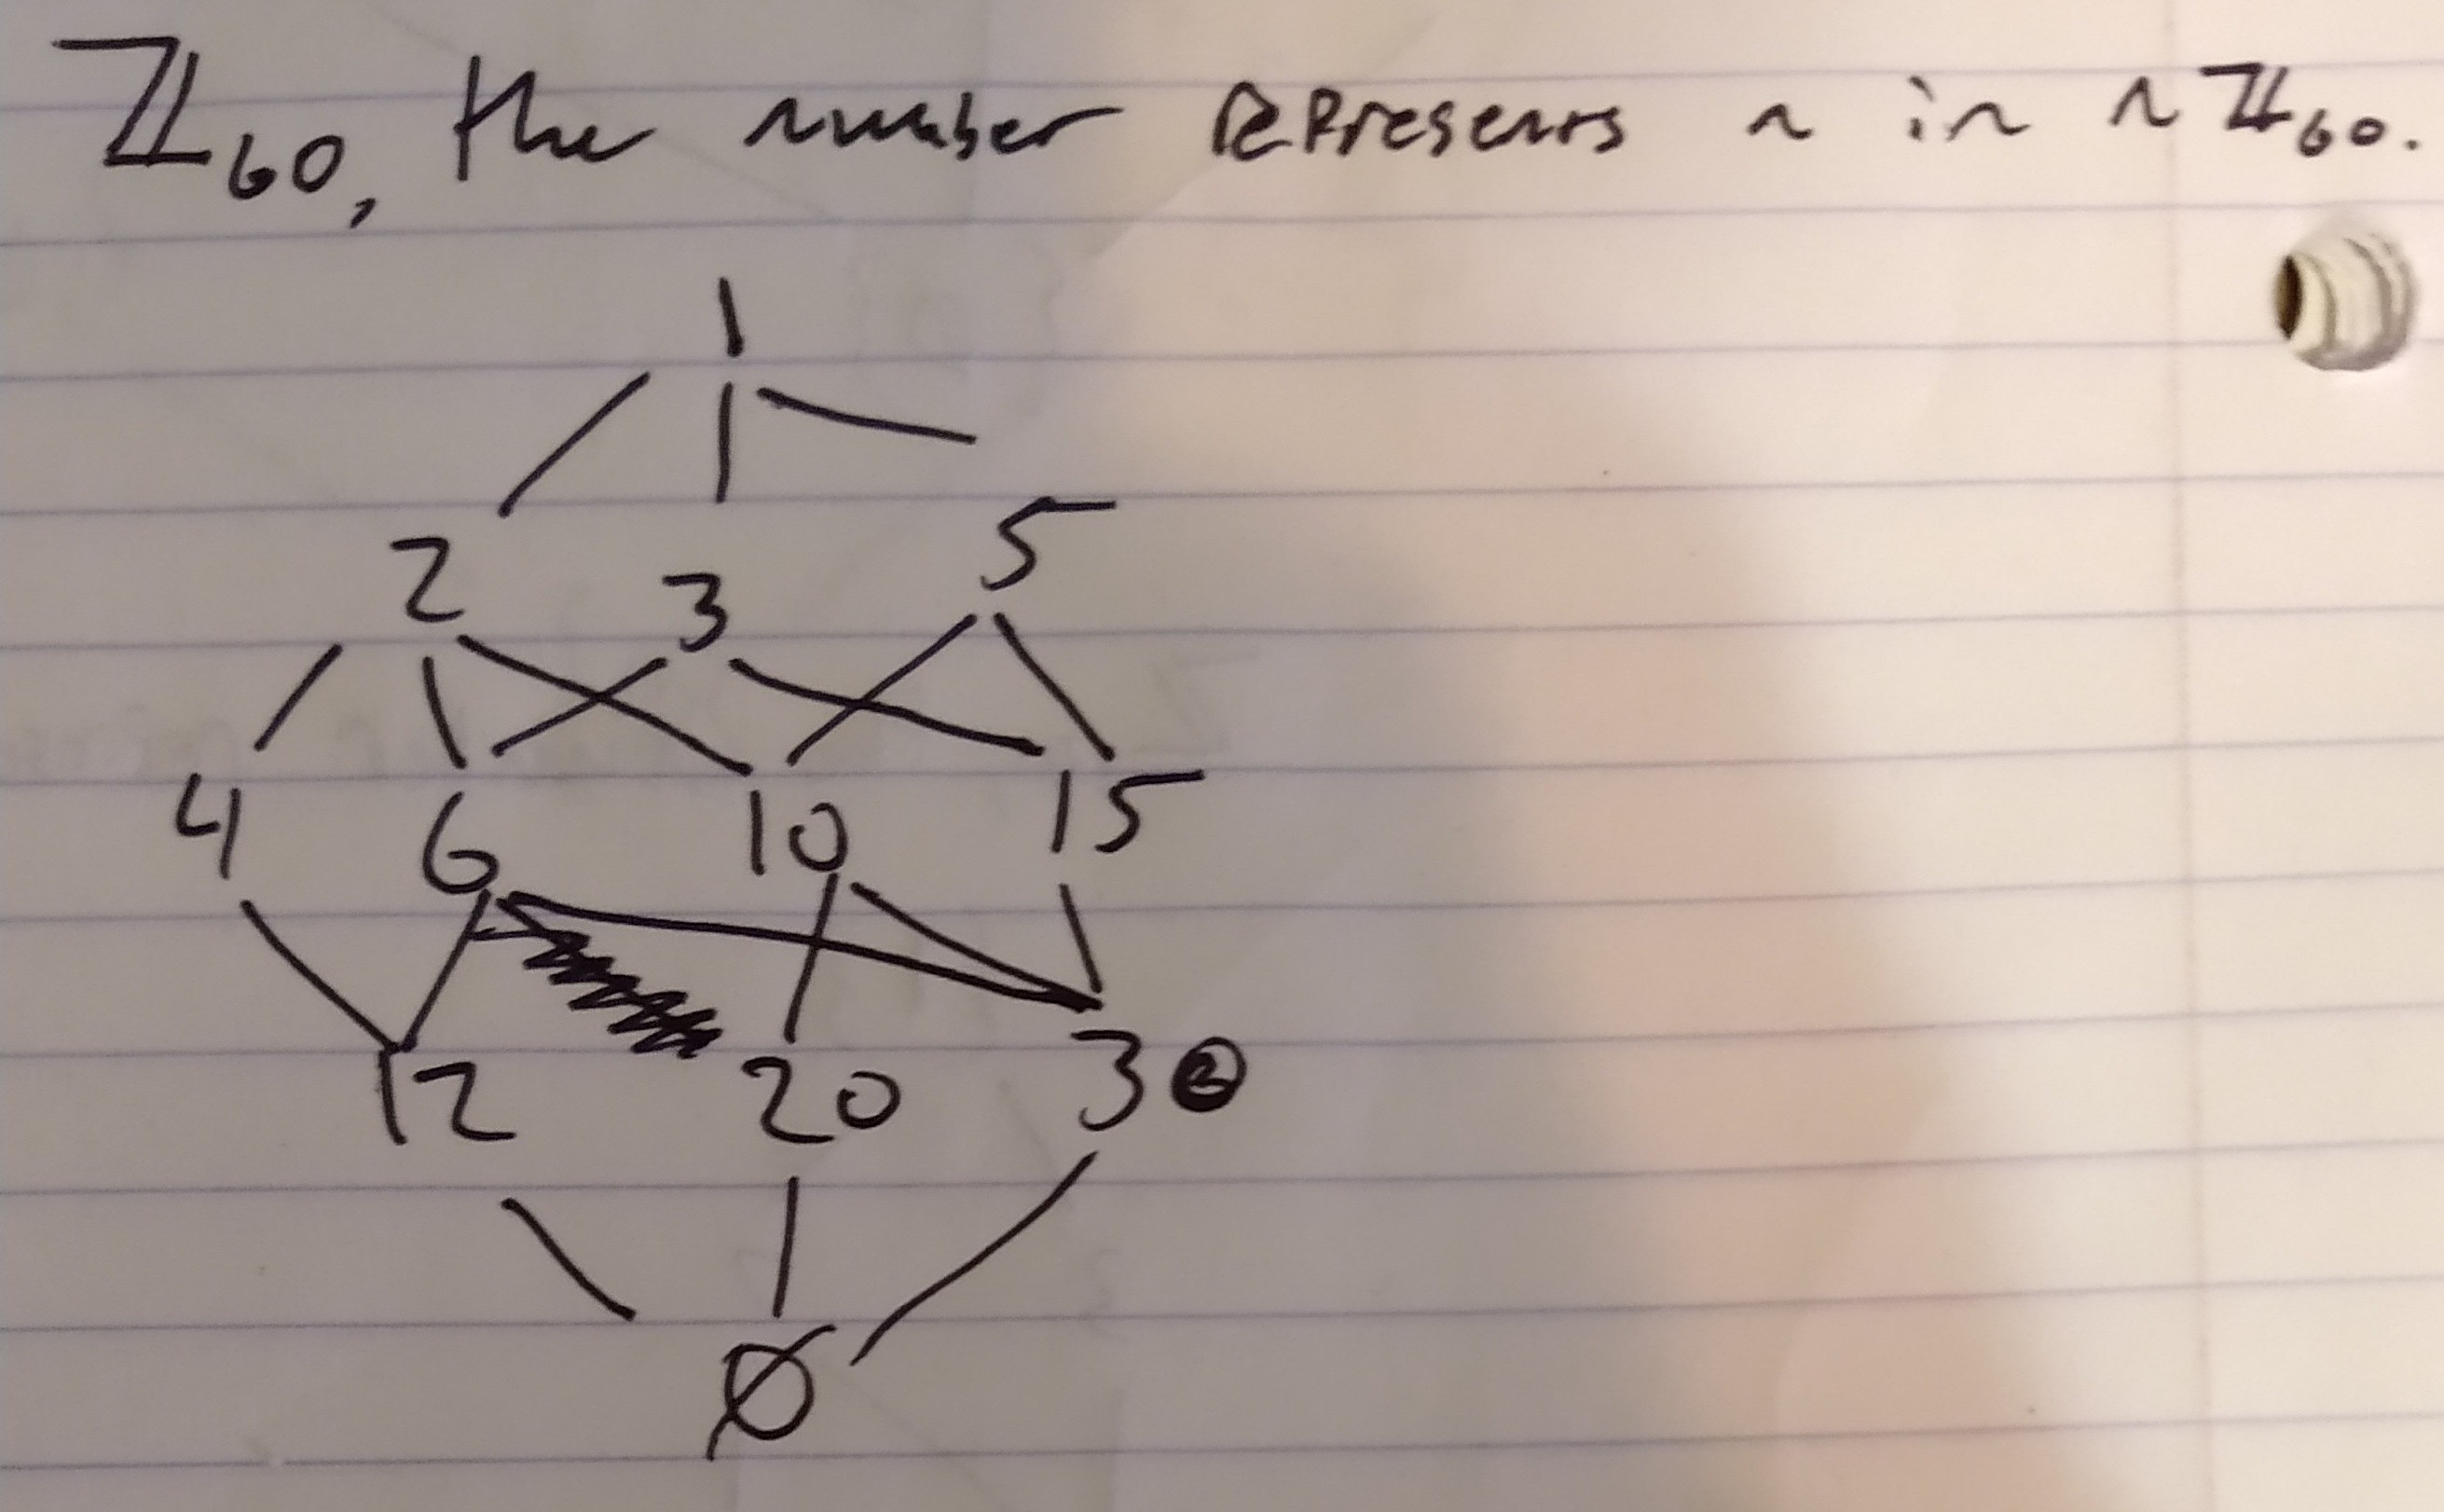 ℤ60, the number represents n in nℤ60.
1
2 3 5
4 6 10 15
12 20 30
Ø